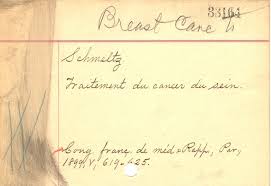 33164
Breast Canc
Schmeltz
Traitement du cancer du sein.
Cong. franç. de méd. Rapp., Par.,
1899, V, 619-625.